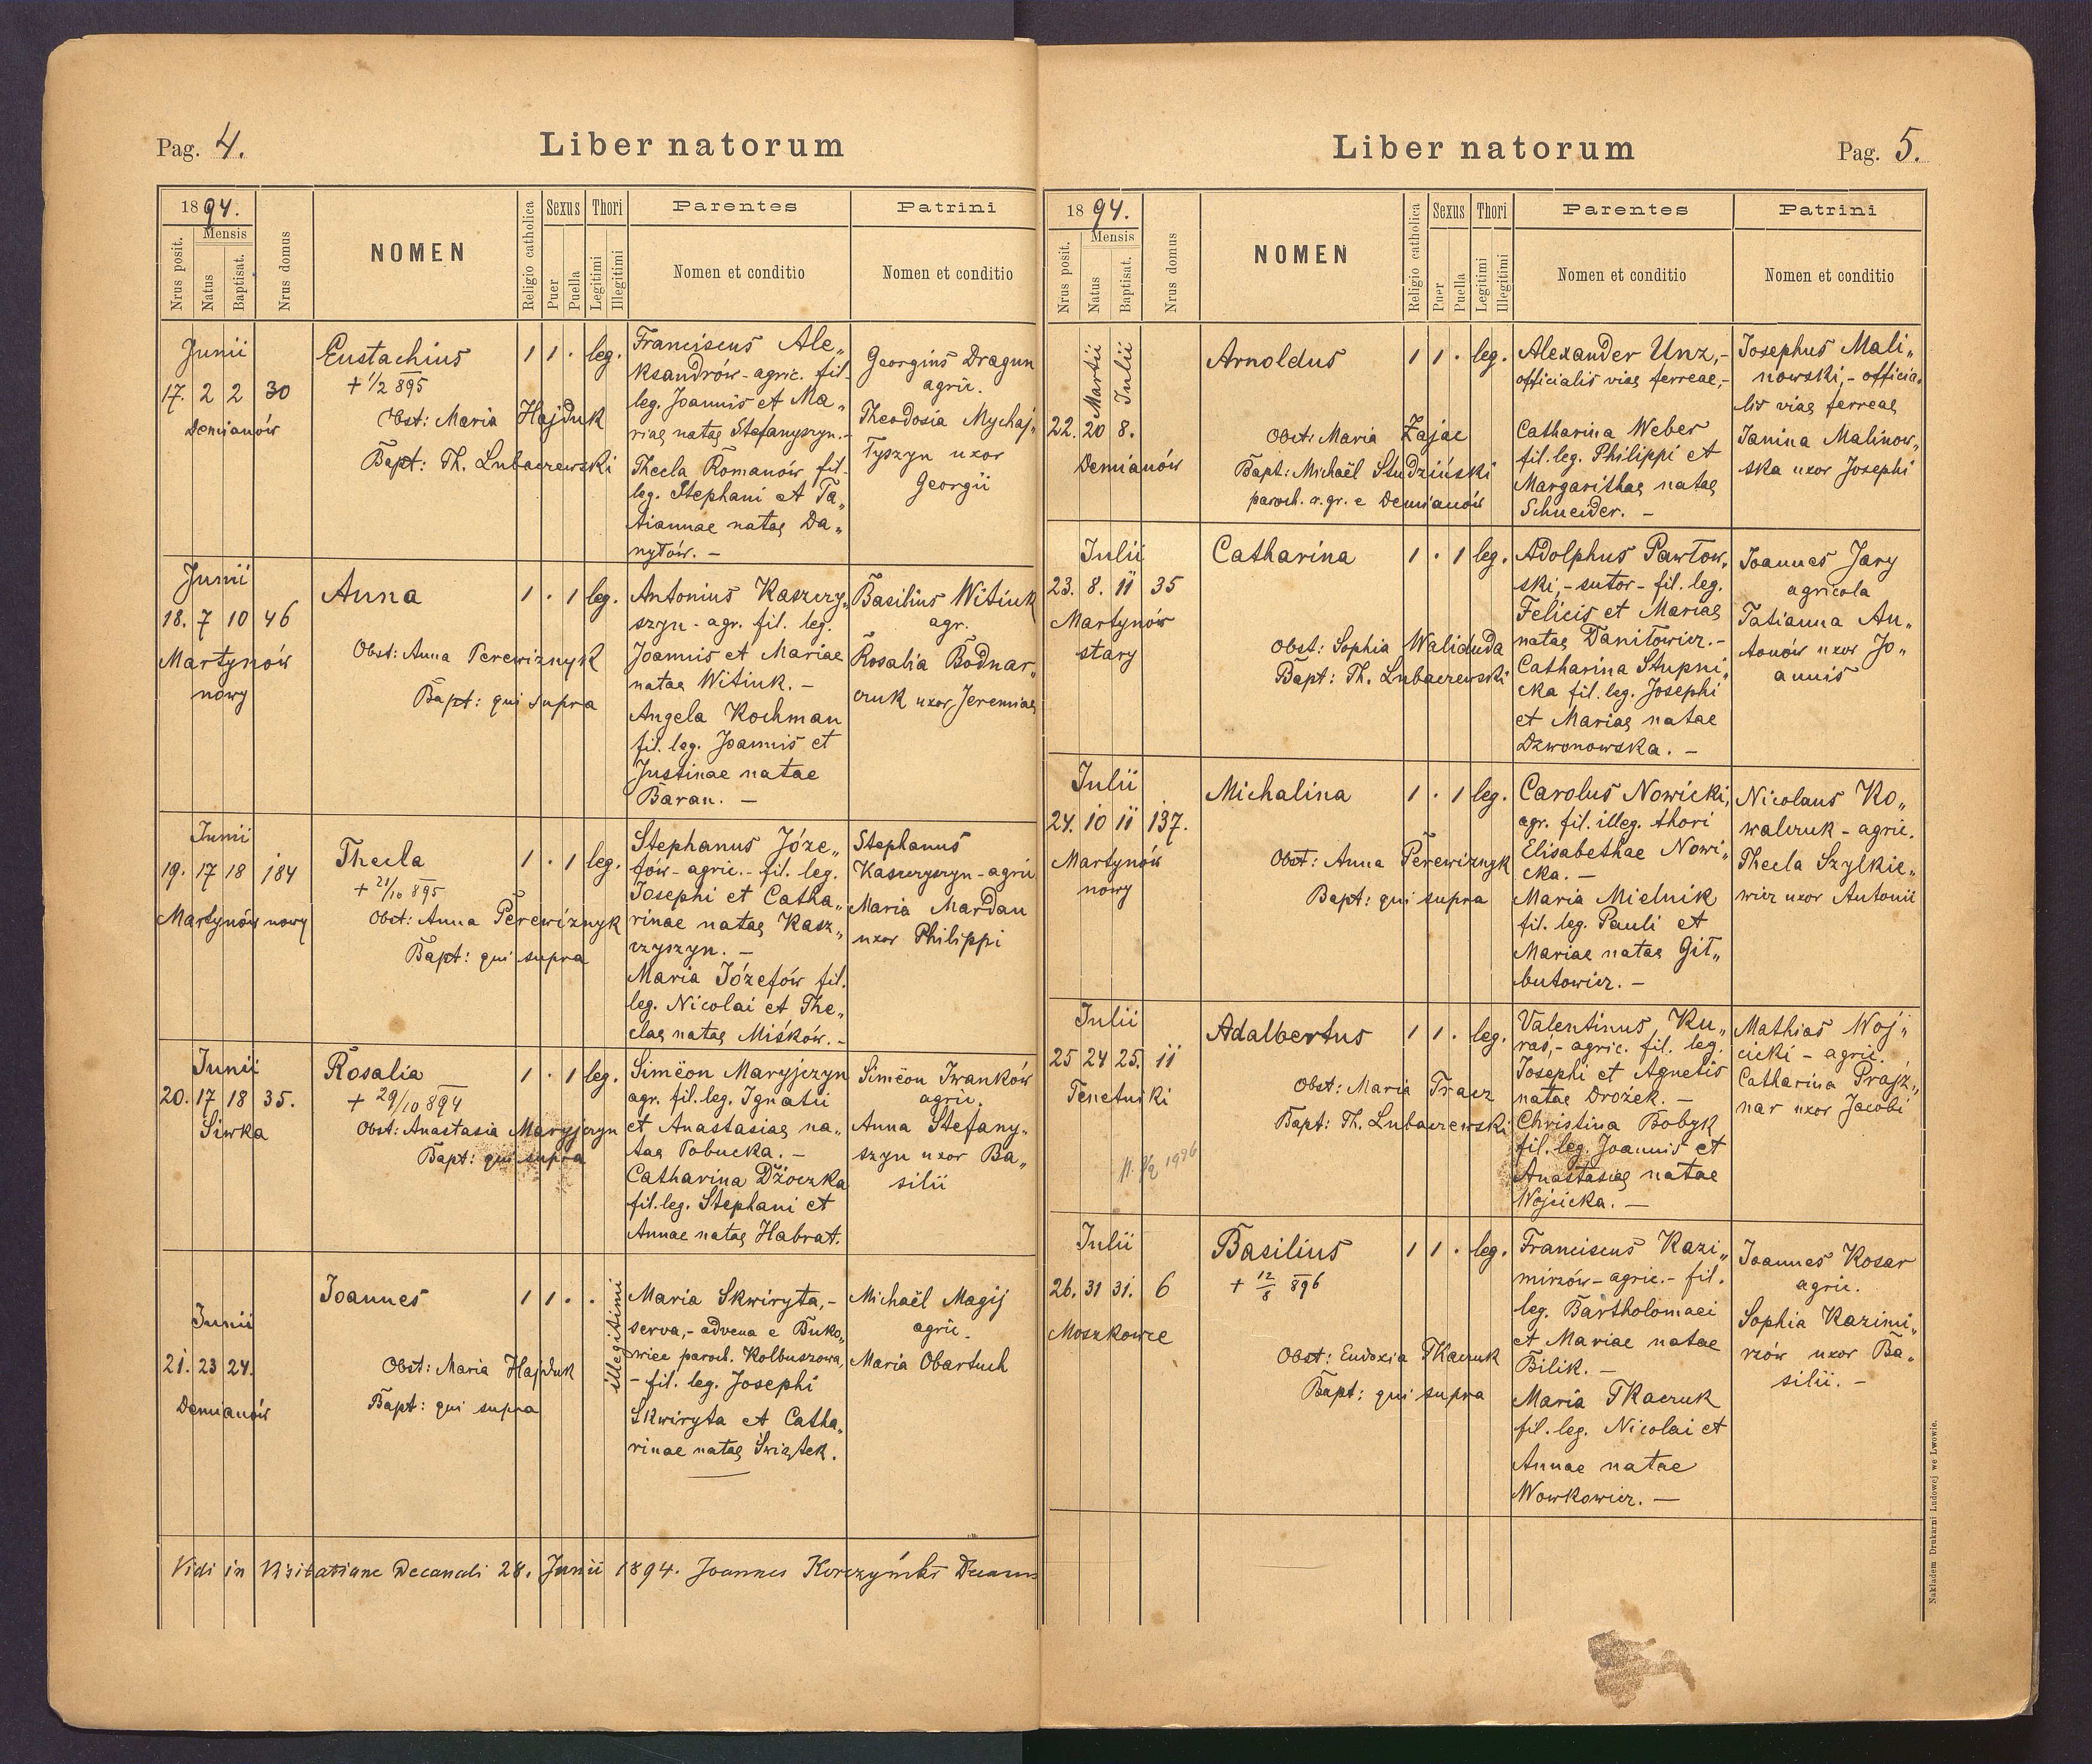 Pag. 4.
Liber natorum
1894.
Mensis
Nrus posit.
Natus
Baptisat.
Nrus domus
NOMEN
Religio catholica
Sexus
Puer
Puella
Thori
Legitimi
Illegitimi
Parentes
Nomen et conditio
Patrini
Nomen et conditio
Junii
17. 2 2 30
Demianów
Eustachius
+ 1/2 895
Obst: Maria Hajduk
Bapt: Th. Lubaczewski
1 1 . leg.
Franciscus Ale„
ksandrów - agric. fil.
leg. Joannis et Ma„
riae natae Stefanyszyn. -
Thecla Romanów fil.
leg. Stephani et Ta„
tiannae natae Da„
nyłów. -
Georgius Dragun
agric.
Theodosia Mychaj„
łyszyn uxor
Georgii
Junii
18. 7 10 46
Martynów
nowy
Anna
Obst: Anna Perewiznyk
Bapt: qui supra
1 . 1 leg.
Antonius Kaszczy„
szyn - agr. fil. leg.
Joannis et Mariae
natae Witiuk. -
Angela Kochman
fil. leg. Joannis et
Justinae natae
Baran. -
Basilius Witiuk
agr.
Rosalia Bodnar„
czuk uxor Jeremiae
Junii
19. 17 18 184
Martynów nowy
Thecla
+ 21/10 895
Obst: Anna Perewiznyk
Bapt: qui supra
1 . 1 leg.
Stephanus Józe„
fów - agric. - fil. leg.
Josephi et Catha„
rinae natae Kasz„
czyszyn. -
Maria Józefów fil.
leg. Nicolai et The„
clae natae Miśków. -
Stephanus
Kaszczyszyn - agric
Maria Mardan
uxor Philippi
Junii
20. 17 18 35.
Siwka
Rosalia
+ 29/10 894
Obst: Anastasia Maryjczyn
Bapt: qui supra
1 . 1 leg.
Simëon Maryjczyn
agr. fil. leg. Ignatii
et Anastasiae na„
tae Pobucka. -
Catharina Dżoczka
fil. leg. Stephani et
Annae natae Habrat.
Simëon Iwanków
agric.
Anna Stefany„
szyn uxor Ba„
silii
Junii
21. 23 24.
Demianów
Joannes
Obst: Maria Hajduk
Bapt: qui supra
1 1 . .
illegitimi
Maria Skwiryta, -
serva, - advena e Buko„
wiec paroch. Kolbuszowa,
- fil. leg. Josephi
Skwiryta et Catha„
rinae natae Świątek.
Michaël Magij
agric.
Maria Obartuch
Vidi in Visitatione Decanali 28. Junii 1894. Joannes Korczyński
Liber natorum
Pag. 5.
1894.
Mensis
Nrus posit.
Natus
Baptisat.
Nrus domus
NOMEN
Religio catholica
Sexus
Puer
Puella
Thori
Legitimi
Illegitimi
Parentes
Nomen et conditio
Patrini
Nomen et conditio
Martii
Julii
22. 20 8.
Demianów
Arnoldus
Obst: Maria Zając
Bapt: Michaël Studziński
paroch. r. gr. e Demianów
1 1 . leg.
Alexander Unz, -
officialis viae ferreae, -
Catharina Weber
fil. leg. Philippi et
Margarithae natae
Schneider. -
Josephus Mali„
nowski, - officia„
lis viae ferreae
Janina Malinow„
ska uxor Josephi
Julii
23. 8. 11 35
Martynów
stary
Catharina
Obst: Sophia Waliduda
Bapt: Th. Lubaczewski
1 . 1 leg.
Adolphus Pawłow„
ski, - sutor - fil. leg.
Felicis et Mariae
natae Daniłowicz. -
Catharina Stupni„
cka fil. leg. Josephi
et Mariae natae
Dzwonowska. -
Joannes Jary
agricola
Tatianna An„
tonów uxor Jo„
annis
Julii
24. 10 11 137.
Martynów
nowy
Michalina
Obst: Anna Perewiznyk
Bapt: qui supra
1 . 1 leg.
Carolus Nowicki,
agr. fil. illeg. thori
Elisabethae Nowi„
cka. -
Maria Mielnik
fil. leg. Pauli et
Mariae natae Git„
butowicz. -
Nicolaus Ko„
walczuk - agric.
Thecla Szylkie„
wicz uxor Antonii
Julii
25 24 25. 11
Tenetniki
Adalbertus
Obst: Maria Tracz
Bapt: Th. Lubaczewski
1 1 . leg.
Valentinus Ku„
raś, - agric. fil. leg.
Josephi et Agnetis
natae Drożek. -
Christina Bobyk
fil. leg. Joannis et
Anastasiae natae
Wojcicka. -
Mathias Woj„
cicki - agric.
Catharina Prajz„
nar uxor Jacobi
Julii
26. 31 31. 6
Moszkowce
Basilius
+ 12/8 896
Obst: Eudoxia Tkaczuk
Bapt: qui supra
1 1 . leg.
Franciscus Kazi„
mirzów - agric. - fil.
leg. Bartholomaei
et Mariae natae
Bilik. -
Maria Tkaczuk
fil. leg. Nicolai et
Annae natae
Wowkowicz. -
Joannes Kosar
agric.
Sophia Kazimi„
rzów uxor Ba„
silii. -
Nakładem Drukarni Ludowej we Lwowie.